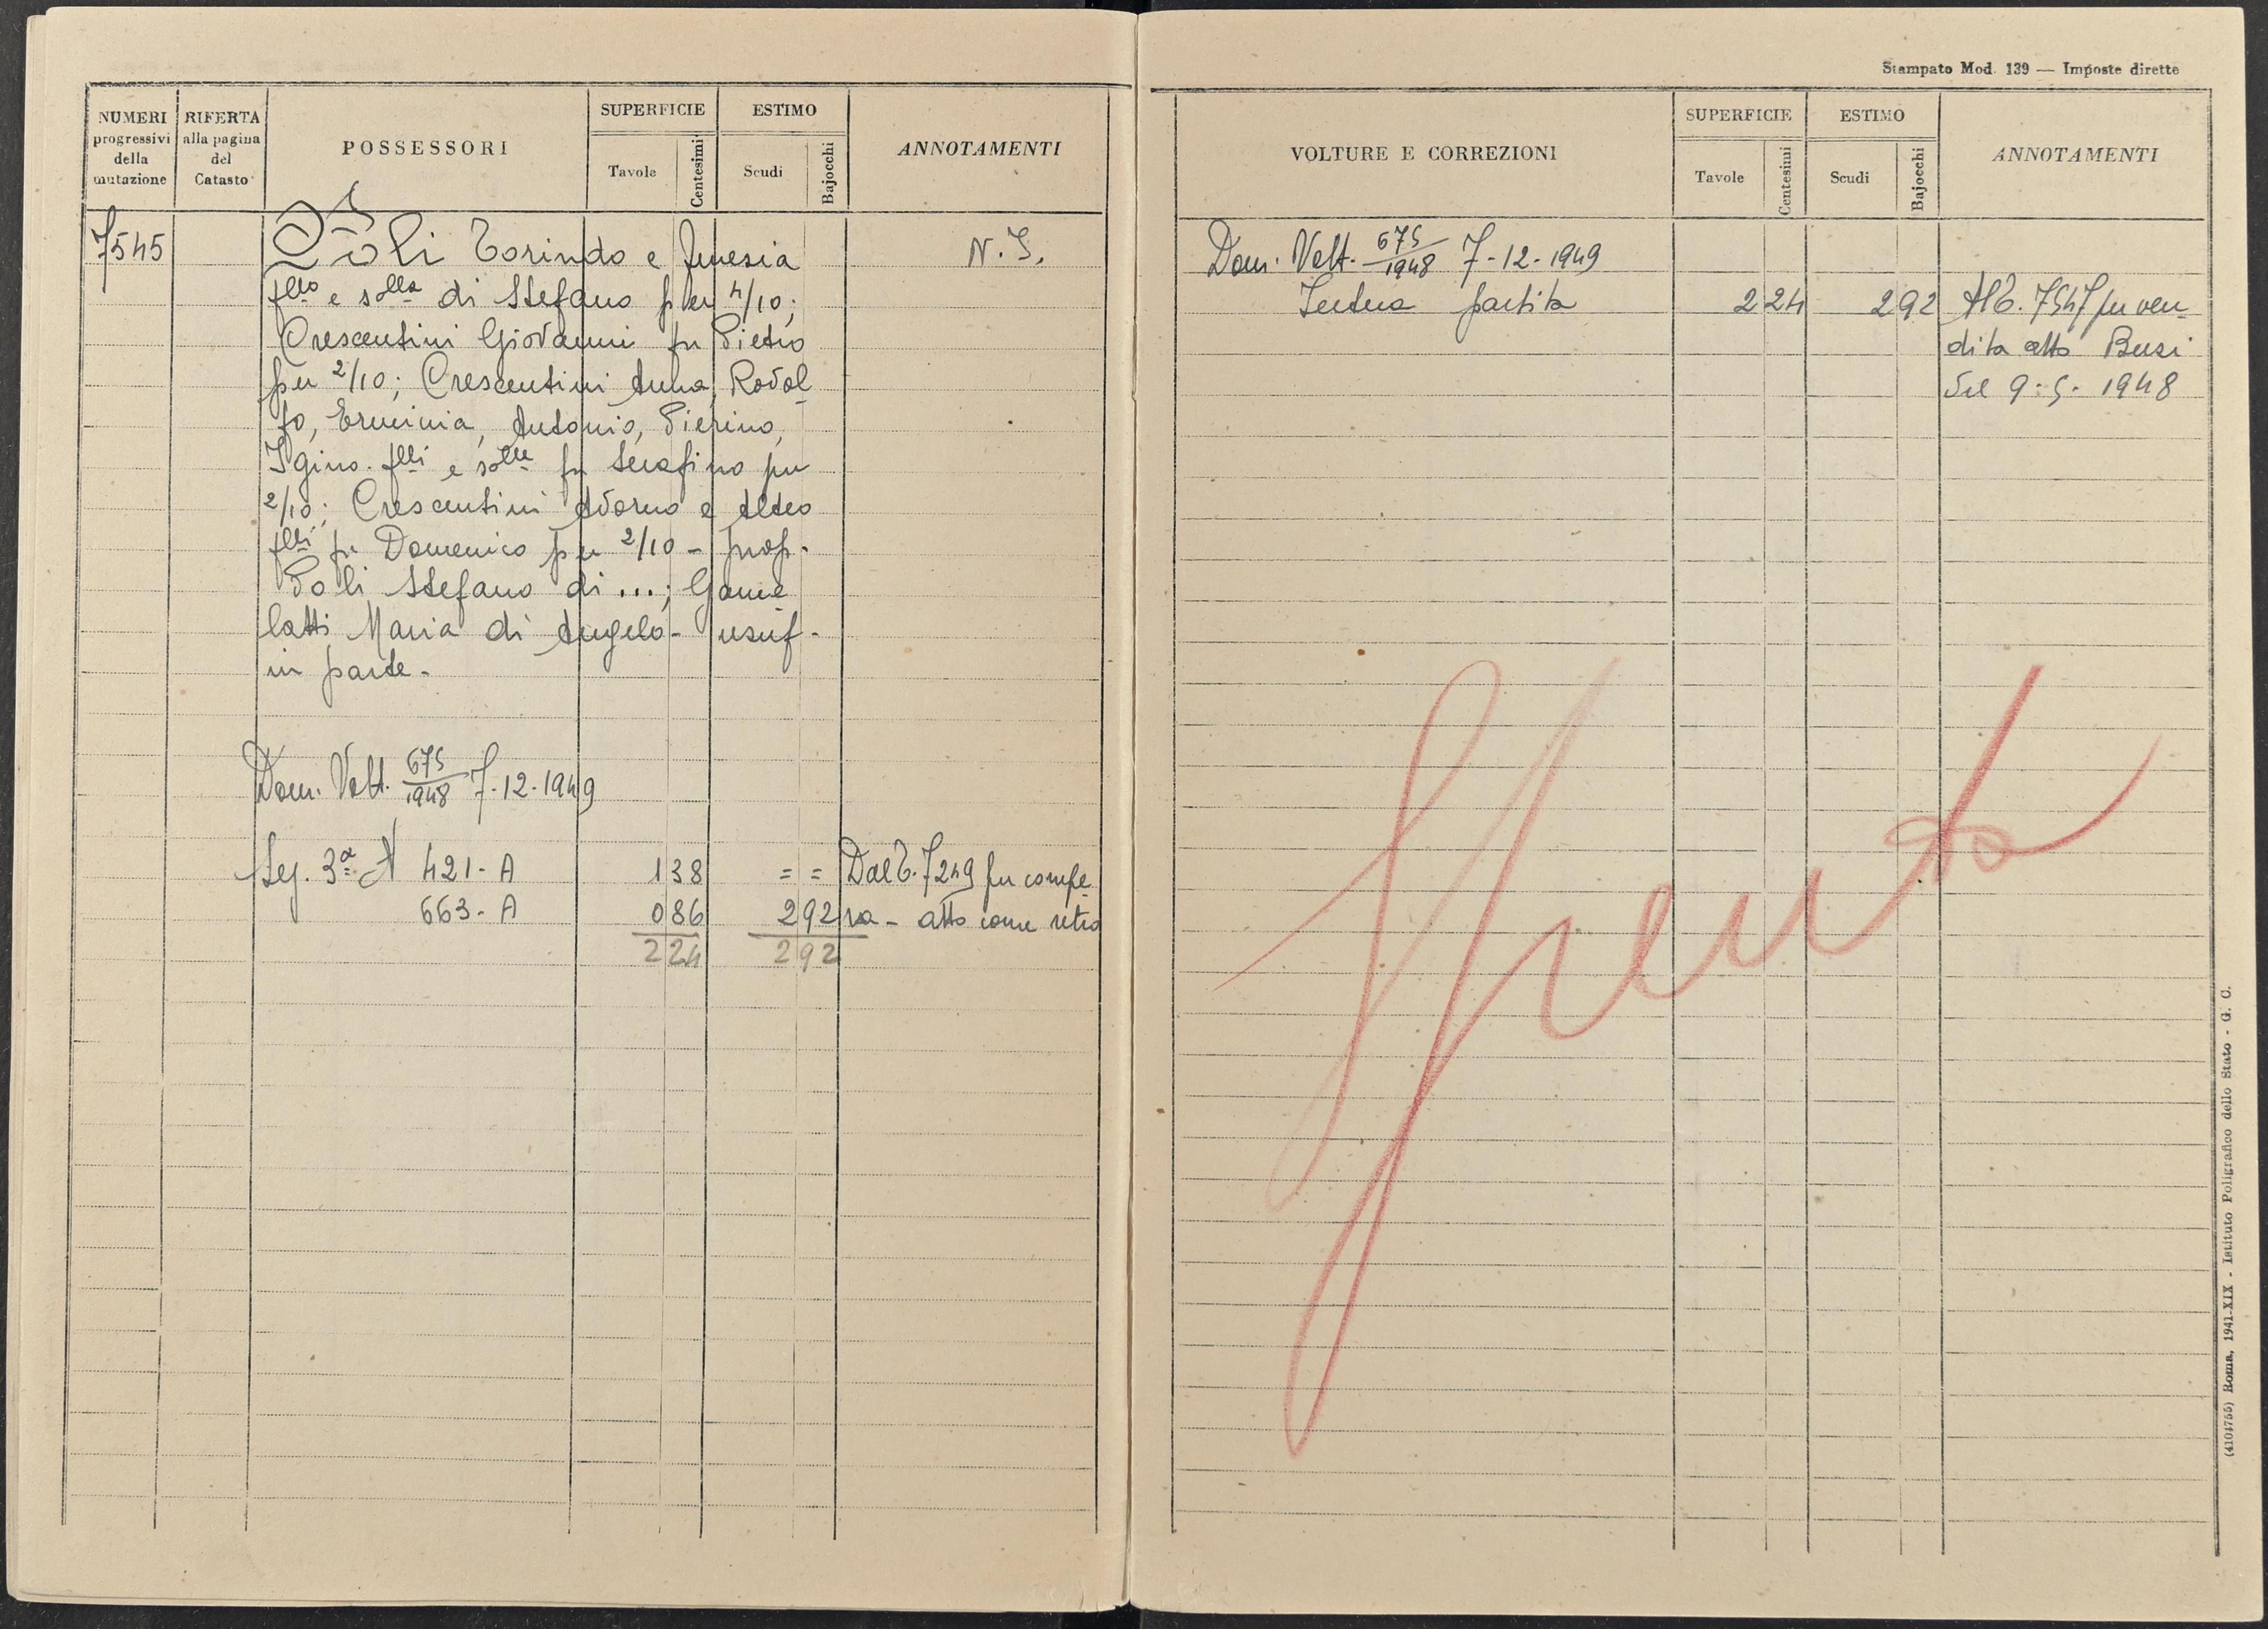 NUMERI progressivi della mutazione
RIFERTA alla pagina del Catasto
POSSESSORI
SUPERFICIE
Tavole
Centesimi
ESTIMO
Scudi
Bajocchi
ANNOTAMENTI
7545
Poli Torindo e
N.I.
flло e slla di Stefano per 4/10;
Crescentini Giovanni fu Pietro
per 2/10; Crescentini Anna, Rodol
fo, Erminia, Antonio, Pierino,
Igino flli e slle fu Serafino per
2/10; Crescentini Adorno e Alteo
flli fu Domenico per 2/10 - prop.
Poli Stefano di ...; Game
latti Maria di Angelo - usuf.
in parte.
Dom. Volt. 675/1948 7-12-1949
Sez. 3a N 421-A 138 = = Dal T. 7249 per compe
663-A 086 292 ra - atto come retro
224 292
Stampato Mod. 139 — Imposte dirette
VOLTURE E CORREZIONI
SUPERFICIE
Tavole
Centesimi
ESTIMO
Scudi
Bajocchi
ANNOTAMENTI
Dom. Volt. 675/1948 7-12-1949
Intera partita 224 292 Al T. 7547 per ven
dita atto Busi
del 9-5-1948
Spento
(4104755) Roma, 1941-XIX - Istituto Poligrafico dello Stato - G. C.